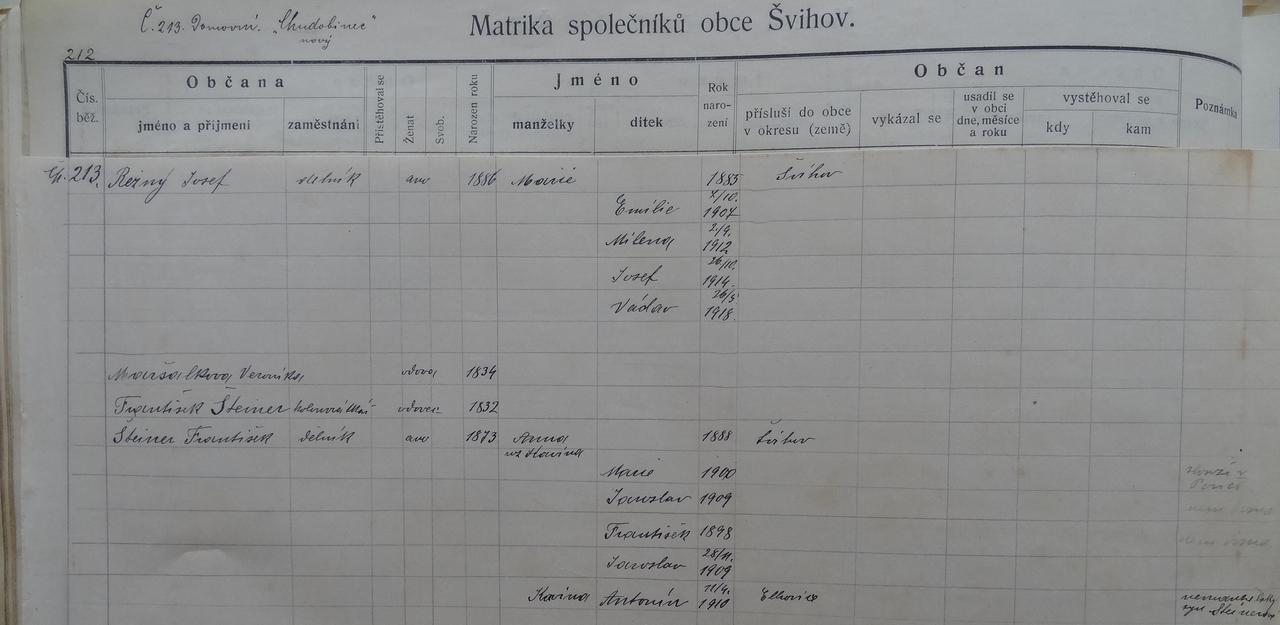 Č. 213. Domovní. „Chudobinec"
nový
Matrika společníků obce Švihov.
212
Čís. běž.
Občana
jméno a příjmení
zaměstnání
Přistěhoval se
Ženat
Svob.
Narozen roku
Jméno
manželky
dítek
Rok naro- zení
Občan
přísluší do obce v okresu (země)
vykázal se
usadil se v obci dne, měsíce a roku
vystěhoval se
kdy
kam
Poznámka
čp. 213. Režný Josef dělník ano 1886 Marie 1885 Švihov
Emilie 7/10. 1907
Milena 2/9. 1912
Josef 26/10. 1914.
Václav 1918.
Maršalkova Veronika vdova 1834
František Šteiner vdovec 1832
Steiner František dělník ano 1873 Anna 1888 Švihov
Marie 1900
Jaroslav 1909
František 1898
Jaroslav 28/11. 1909
Antonín 1910
syn Steinerov